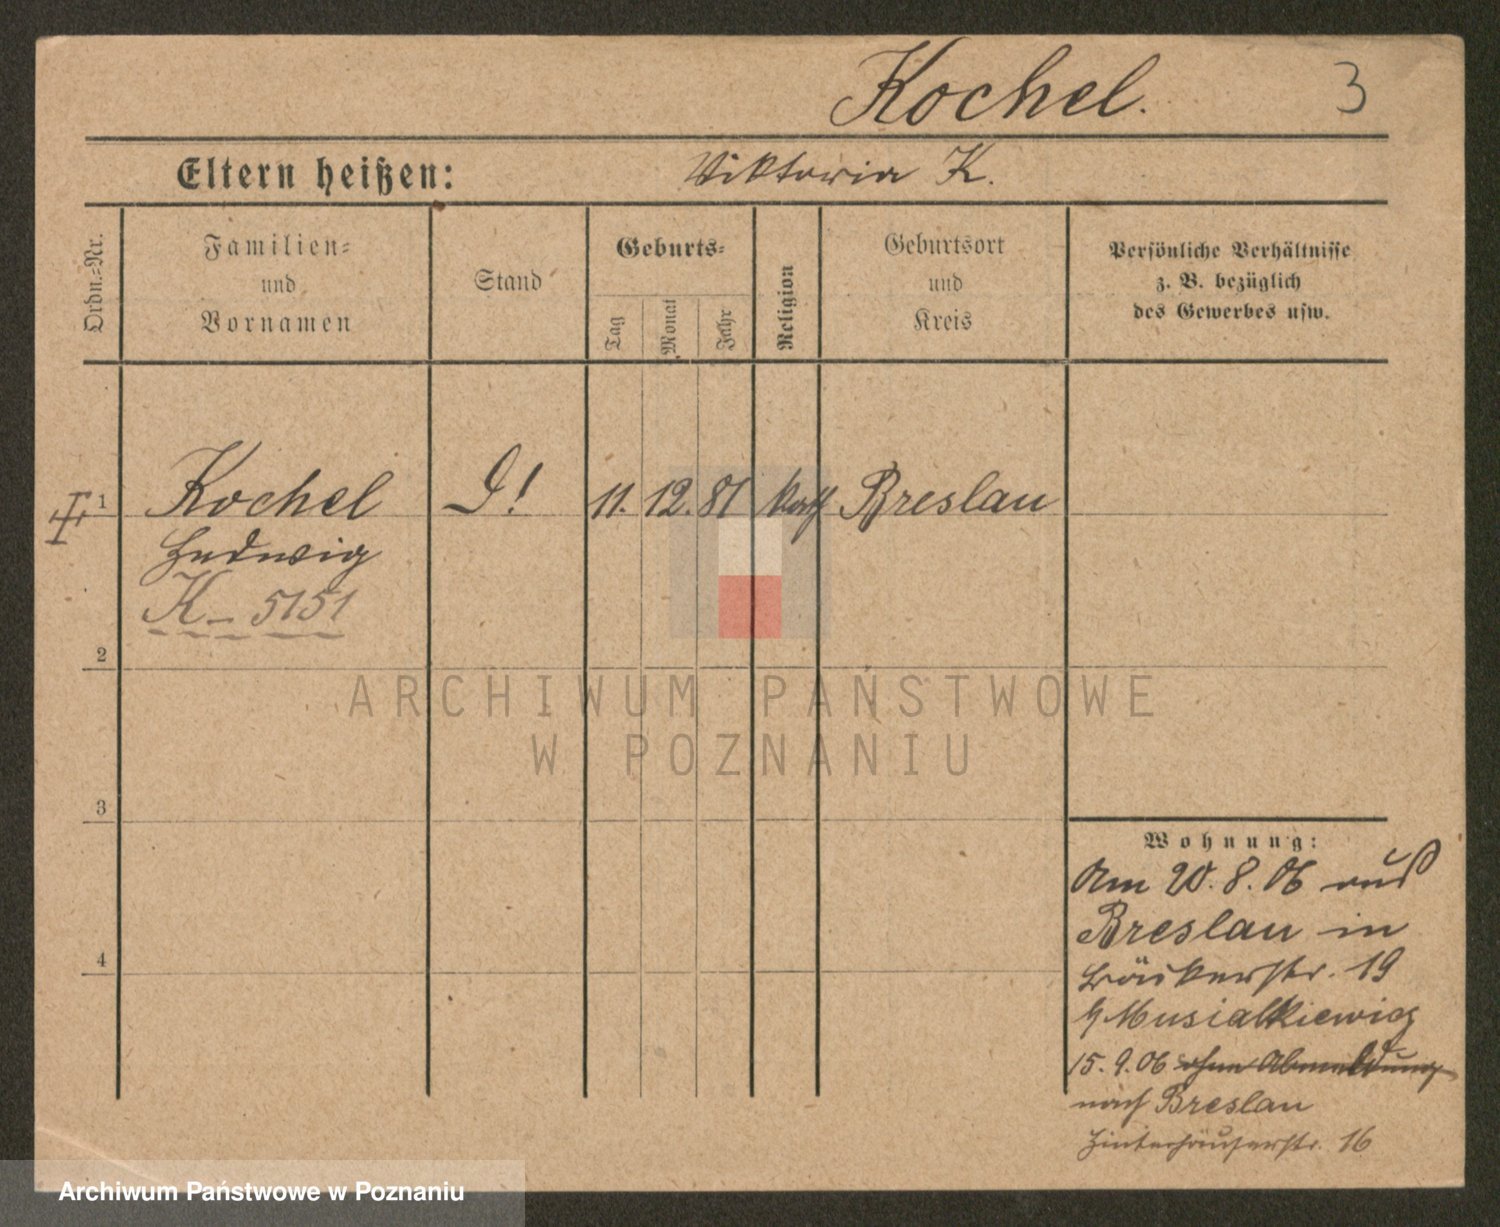 Kochel.
3
Eltern heißen:
Viktoria K.
Ordn.-Nr.
Familien-
und
Vornamen
Stand
Geburts-
Tag
Monat
Jahr
Religion
Geburtsort
und
Kreis
Persönliche Verhältnisse
z. B. bezüglich
des Gewerbes usw.
1
Kochel
11. 12. 81
kath
Breslau
Hedwig
K - 5151
2
ARCHIWUM PAŃSTWOWE
W POZNANIU
3
Wohnung:
Am 20. 8. 06 aus
Breslau in
Bäckerstr. 19
b Musialkiewicz
4
15. 9. 06 ohne Abmeldung
nach Breslau
Hinterhäuserstr. 16
Archiwum Państwowe w Poznaniu